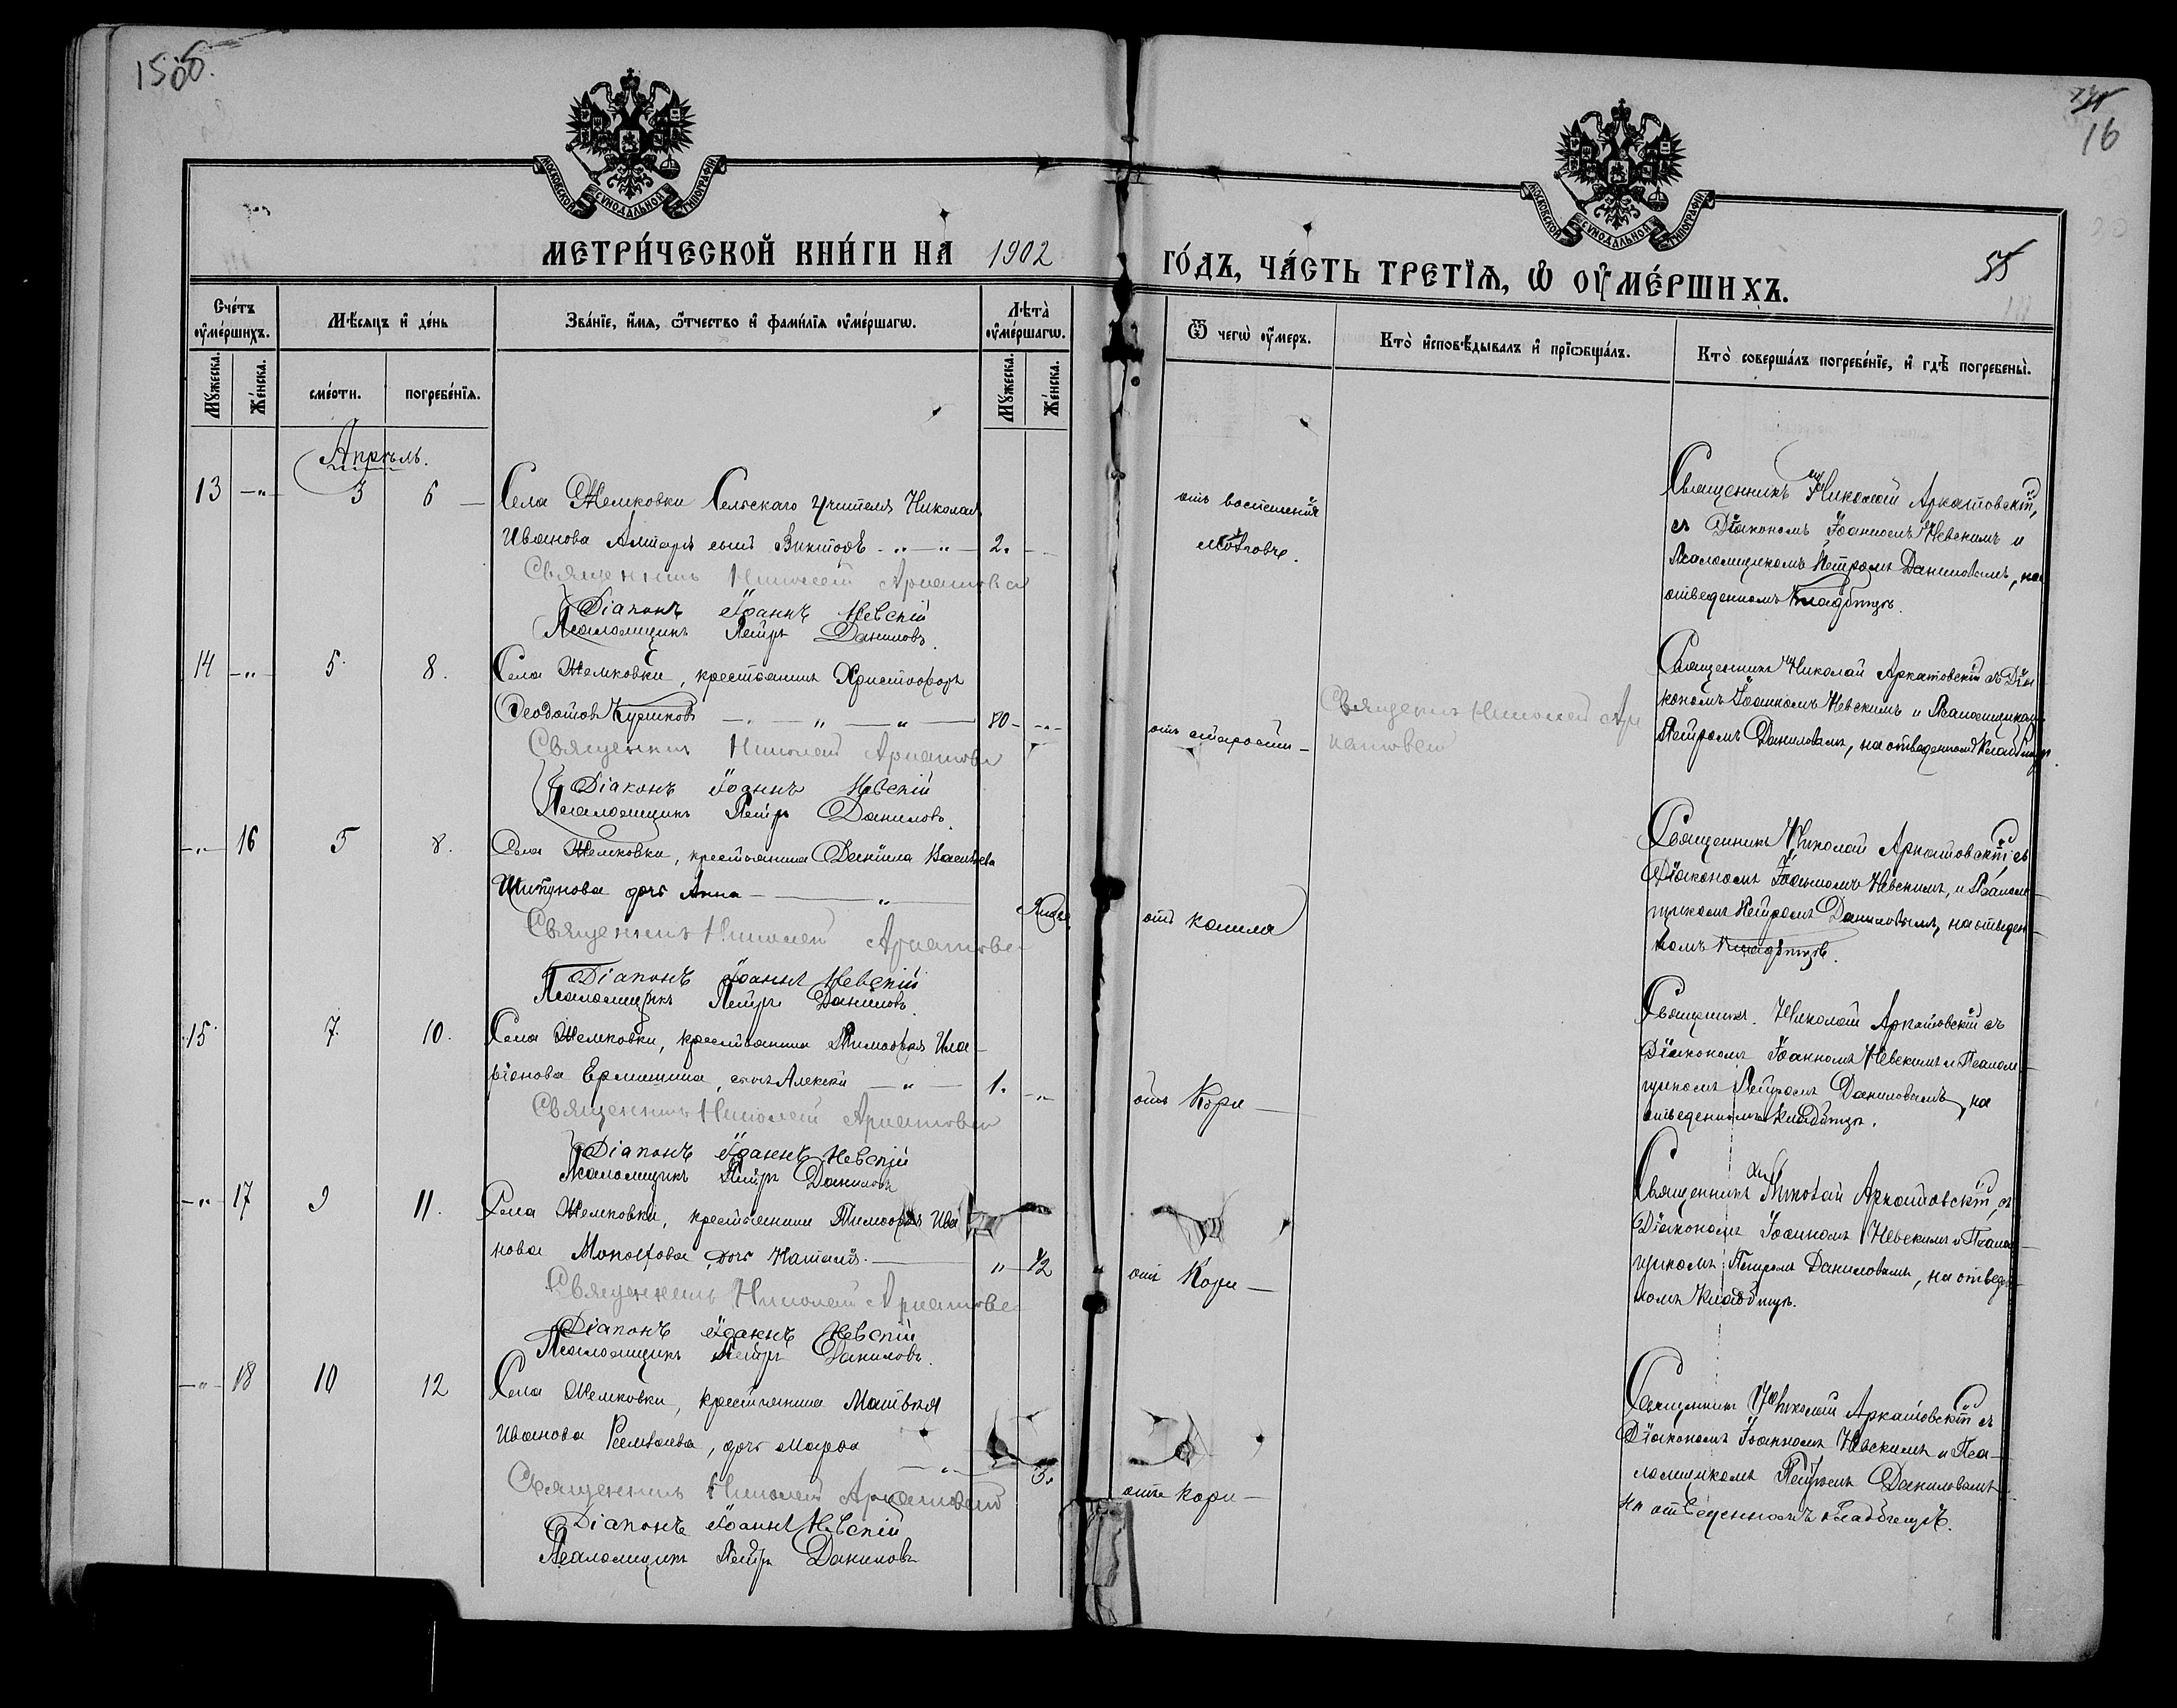 15об.
16
МОСКОВСКОЙ СУНОДАЛЬНОЙ ТИПОГРАФІИ
МОСКОВСКОЙ СУНОДАЛЬНОЙ ТИПОГРАФІИ
МЕТРИ́ЧЕСКОЙ КНИ́ГИ НА 1902
ГО́ДЪ, ЧА́СТЬ ТРЕТІѦ, Ѡ ОУМЕ́РШИХЪ.
55
Сче́тъ оуме́ршихъ.
Мꙋжеска.
Же́нска.
Мѣ́сяцъ и де́нь
сме́рти.
погребе́нїѧ.
Зва́нїе, и́мѧ, ѻ҆́тчество и фами́лїѧ оуме́ршагѡ.
Лѣта̀ оуме́ршагѡ.
Мꙋжеска.
Же́нска.
Ѿ чегѡ̀ оу́меръ.
Кто̀ исповѣ́дывалъ и прїѡбща́лъ.
Кто̀ соверша́лъ погребе́нїе, и гдѣ̀ погребены̀.
Апрѣль.
13 -"- 3 6
Села Шемковки Сельскаго Учителя Николая
Иванова сынъ Викторъ -"-"- 2.
Священникъ Николай
Діаконъ Іоаннъ Невскій
Псаломщикъ Петръ Даниловъ.
отъ воспаленія
Священникъ Николай Аркатовскій,
съ Діакономъ Іоанномъ Невскимъ и
Псаломщикомъ Петромъ Даниловымъ, на
отведенномъ Кладбищѣ.
14 -"- 5. 8.
Села Шемковки, крестьянинъ Христофоръ
Ѳеодотовъ -"-"- 80
Священникъ Николай
Діаконъ Іоаннъ Невскій
Псаломщикъ Петръ Даниловъ.
отъ старости
Священникъ Николай Ар
катовскій
Священникъ Николай Аркатовскій съ Діа
кономъ Іоанномъ Невскимъ и Псаломщикомъ
Петромъ Даниловымъ, на отведенномъ Кладбищѣ.
-"- 16 5 8.
Села Шемковки, крестьянина Даніила Васильева
Шитунова дочь Анна -"-
Священникъ Николай
Діаконъ Іоаннъ Невскій
Псаломщикъ Петръ Даниловъ.
отъ кашля
Священникъ Николай Аркатовскій, съ
Діакономъ Іоанномъ Невскимъ, и Псалом
щикомъ Петромъ Даниловымъ, на отведен
номъ Кладбищѣ.
15. 7. 10.
Села Шемковки, крестьянина Тимофея Ила
ріонова Ермишина, сынъ Алексѣй -"- 1. -"-
Священникъ Николай
Діаконъ Іоаннъ Невскій
Псаломщикъ Петръ Даниловъ
отъ Кори
Священникъ Николай Аркатовскій съ
Діакономъ Іоанномъ Невскимъ и Псалом
щикомъ Петромъ Даниловымъ, на
отведенномъ Кладбищѣ.
-"- 17 9 11.
Села Шемковки, крестьянина Тимофея Ива
нова дочь Наталія. " 1/2
Священникъ Николай
Діаконъ Іоаннъ Невскій
Псаломщикъ Петръ Даниловъ.
отъ Кори
Священникъ Николай Аркатовскій, съ
Діакономъ Іоанномъ Невскимъ и Псалом
щикомъ Петромъ Даниловымъ, на отведен
номъ Кладбищѣ.
-"- 18 10 12
Села Шемковки, крестьянина Матвѣя
Иванова дочь Марѳа -"- 3.
Священникъ Николай
Діаконъ Іоаннъ Невскій
Псаломщикъ Петръ Даниловъ
отъ кори
Священникъ Николай Аркатовскій съ
Діакономъ Іоанномъ Невскимъ и Пса
ломщикомъ Петромъ Даниловымъ
на отведенномъ кладбищѣ.